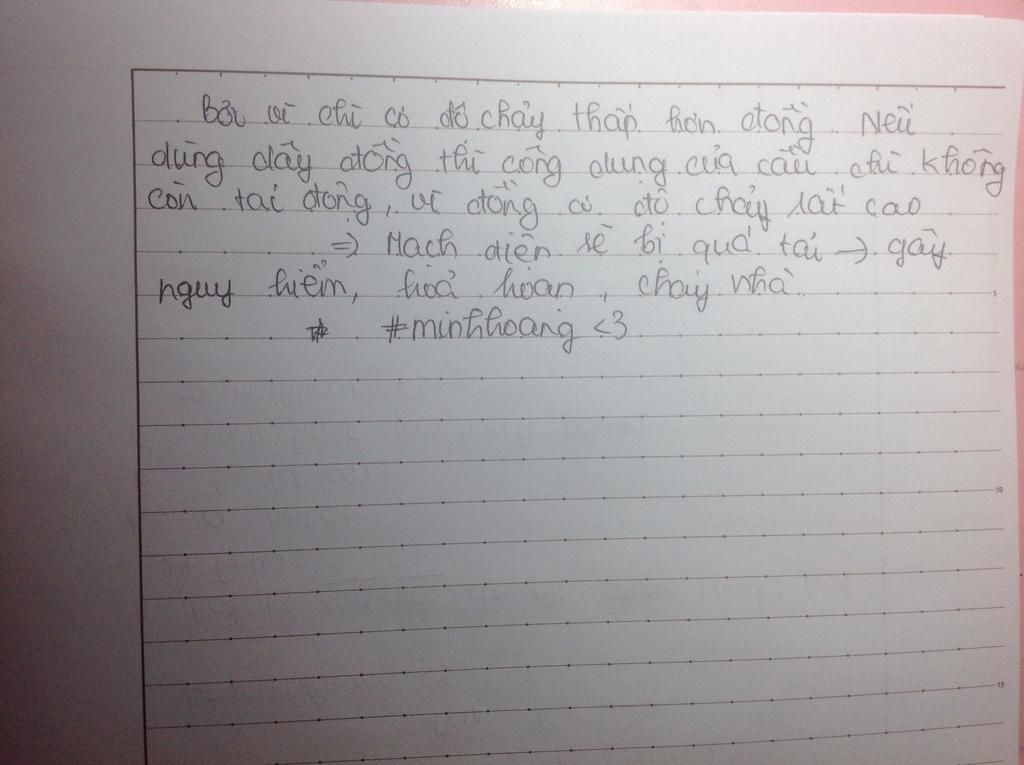 Bởi vì chì có độ chảy thấp hơn đồng. Nếu
dùng dây đồng thì công dụng của cầu chì không
còn tác động, vì đồng có độ chảy rất cao
=> Mạch điện sẽ bị quá tải -> gây
nguy hiểm, hoả hoạn, cháy nhà.
# #minhhoang <3
5
10
15